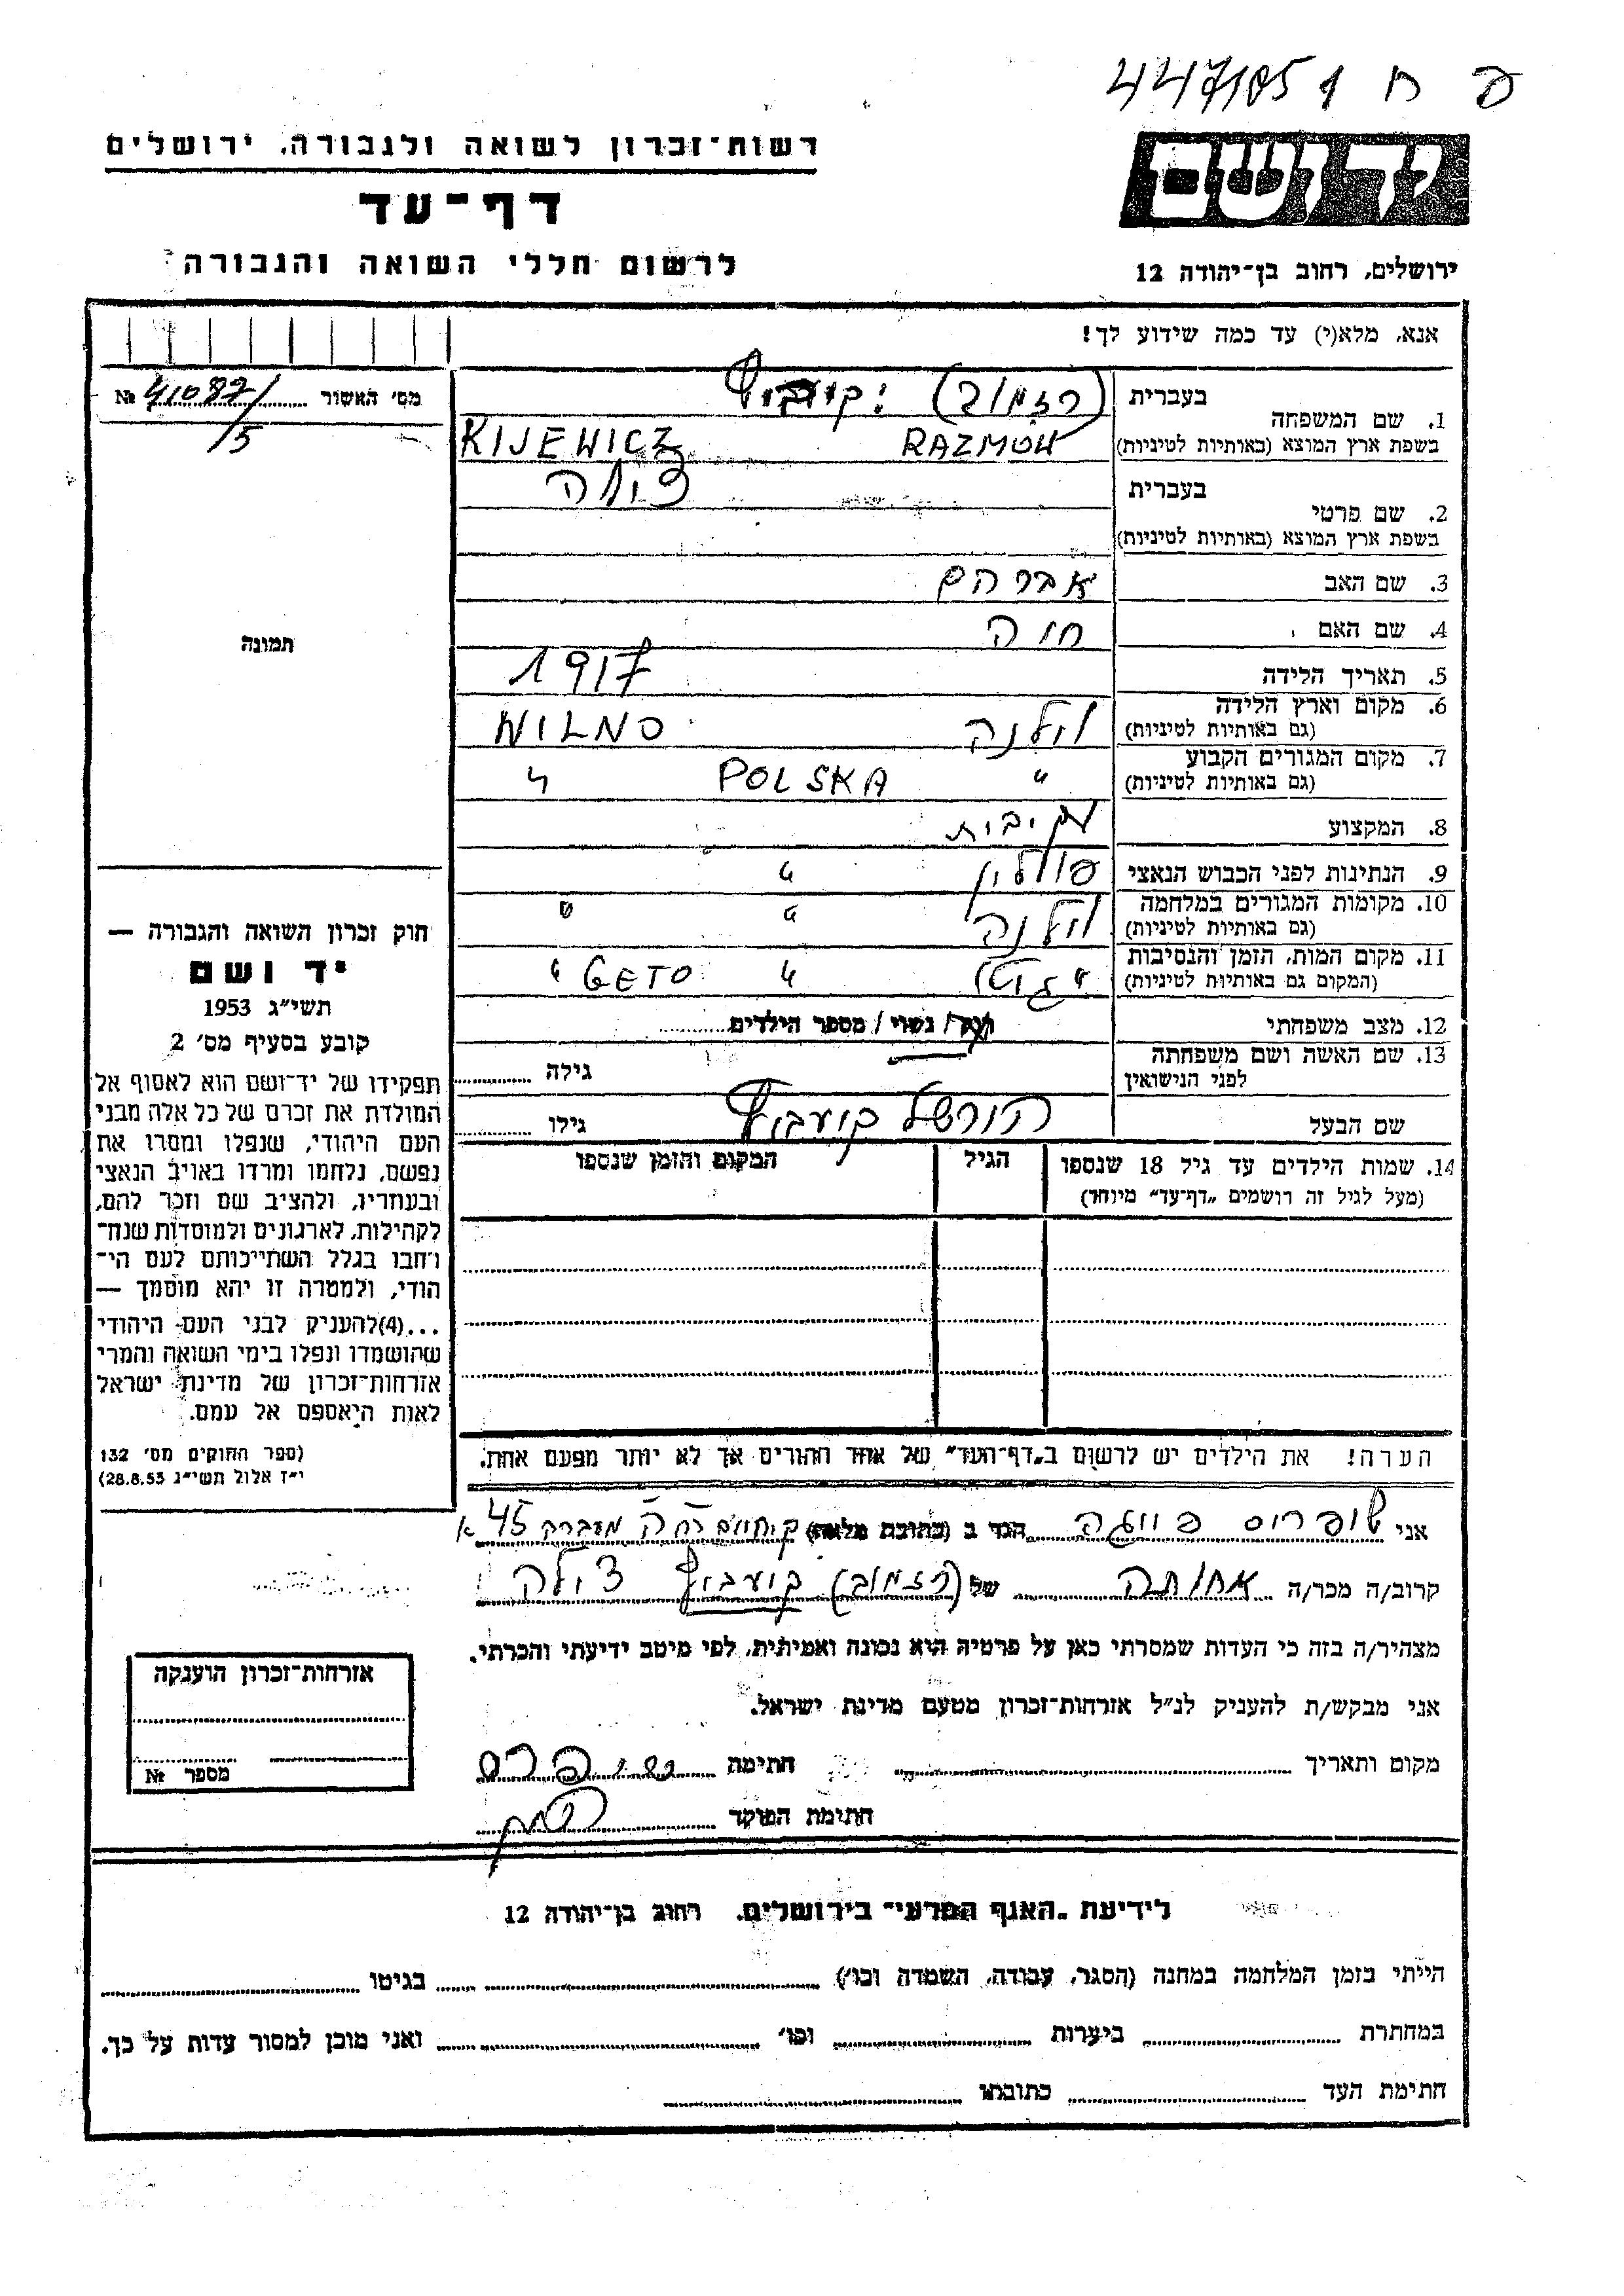 פ ח 1 447185
רשות־זכרון לשואה ולגבורה, ירושלים
ידושם
דף־עד
לרשום חללי השואה והגבורה
ירושלים, רחוב בן־יהודה 12
אנא, מלא(י) עד כמה שידוע לך!
מס' האשור № 41087/
/5
בעברית (רזמוב)
1. שם המשפחה
בשפת ארץ המוצא (באותיות לטיניות) RAZMOW KIJEWICZ
בעברית צילה
2. שם פרטי
בשפת ארץ המוצא (באותיות לטיניות)
3. שם האב אברהם
4. שם האם חוה
תמונה
5. תאריך הלידה 1917
6. מקום וארץ הלידה וילנה WILNO
(גם באותיות לטיניות)
7. מקום המגורים הקבוע " POLSKA "
(גם באותיות לטיניות)
8. המקצוע
9. הנתינות לפני הכבוש הנאצי פולין "
10. מקומות המגורים במלחמה וילנה " "
(גם באותיות לטיניות)
11. מקום המות, הזמן והנסיבות "גטו" " "GETO"
(המקום גם באותיות לטיניות)
12. מצב משפחתי רווק/ נשוי/ מספר הילדים
13. שם האשה ושם משפחתה
לפני הנישואין גילה
שם הבעל הורשל גילו
14. שמות הילדים עד גיל 18 שנספו הגיל המקום והזמן שנספו
(מעל לגיל זה רושמים „דף־עד" מיוחד)
חוק זכרון השואה והגבורה —
יד ושם
תשי"ג 1953
קובע בסעיף מס' 2
תפקידו של יד־ושם הוא לאסוף אל
המולדת את זכרם של כל אלה מבני
העם היהודי, שנפלו ומסרו את
נפשם, נלחמו ומרדו באויב הנאצי
ובעוזריו, ולהציב שם וזכר להם,
לקהילות, לארגונים ולמוסדות שנח־
רחבו בגלל השתייכותם לעם הי־
הודי, ולמטרה זו יהא מוסמך —
...(4)להעניק לבני העם היהודי
שהושמדו ונפלו בימי השואה והמרי
אזרחות־זכרון של מדינת ישראל
לאות היאספם אל עמם.
(ספר החוקים מס' 132
י"ז אלול תשי"ג 28.8.53)
הערה! את הילדים יש לרשום ב„דף־העד" של אחד ההורים אך לא יותר מפעם אחת.
אני שופרוס הגר ב (כתובת מלאה) מעברה 45 א
קרוב/ה מכר/ה אחותה של (רזמוב) צילה
מצהיר/ה בזה כי העדות שמסרתי כאן על פרטיה היא נכונה ואמיתית, לפי מיטב ידיעתי והכרתי.
אני מבקש/ת להעניק לנ"ל אזרחות־זכרון מטעם מדינת ישראל.
מקום ותאריך חתימה
חתימת הפוקד
אזרחות־זכרון הוענקה
מספר №
לידיעת „האגף המדעי" בירושלים, רחוב בן־יהודה 12
הייתי בזמן המלחמה במחנה (הסגר, עבודה, השמדה וכו') בגיטו
במחתרת ביערות וכו' ואני מוכן למסור עדות על כך.
חתימת העד כתובתו